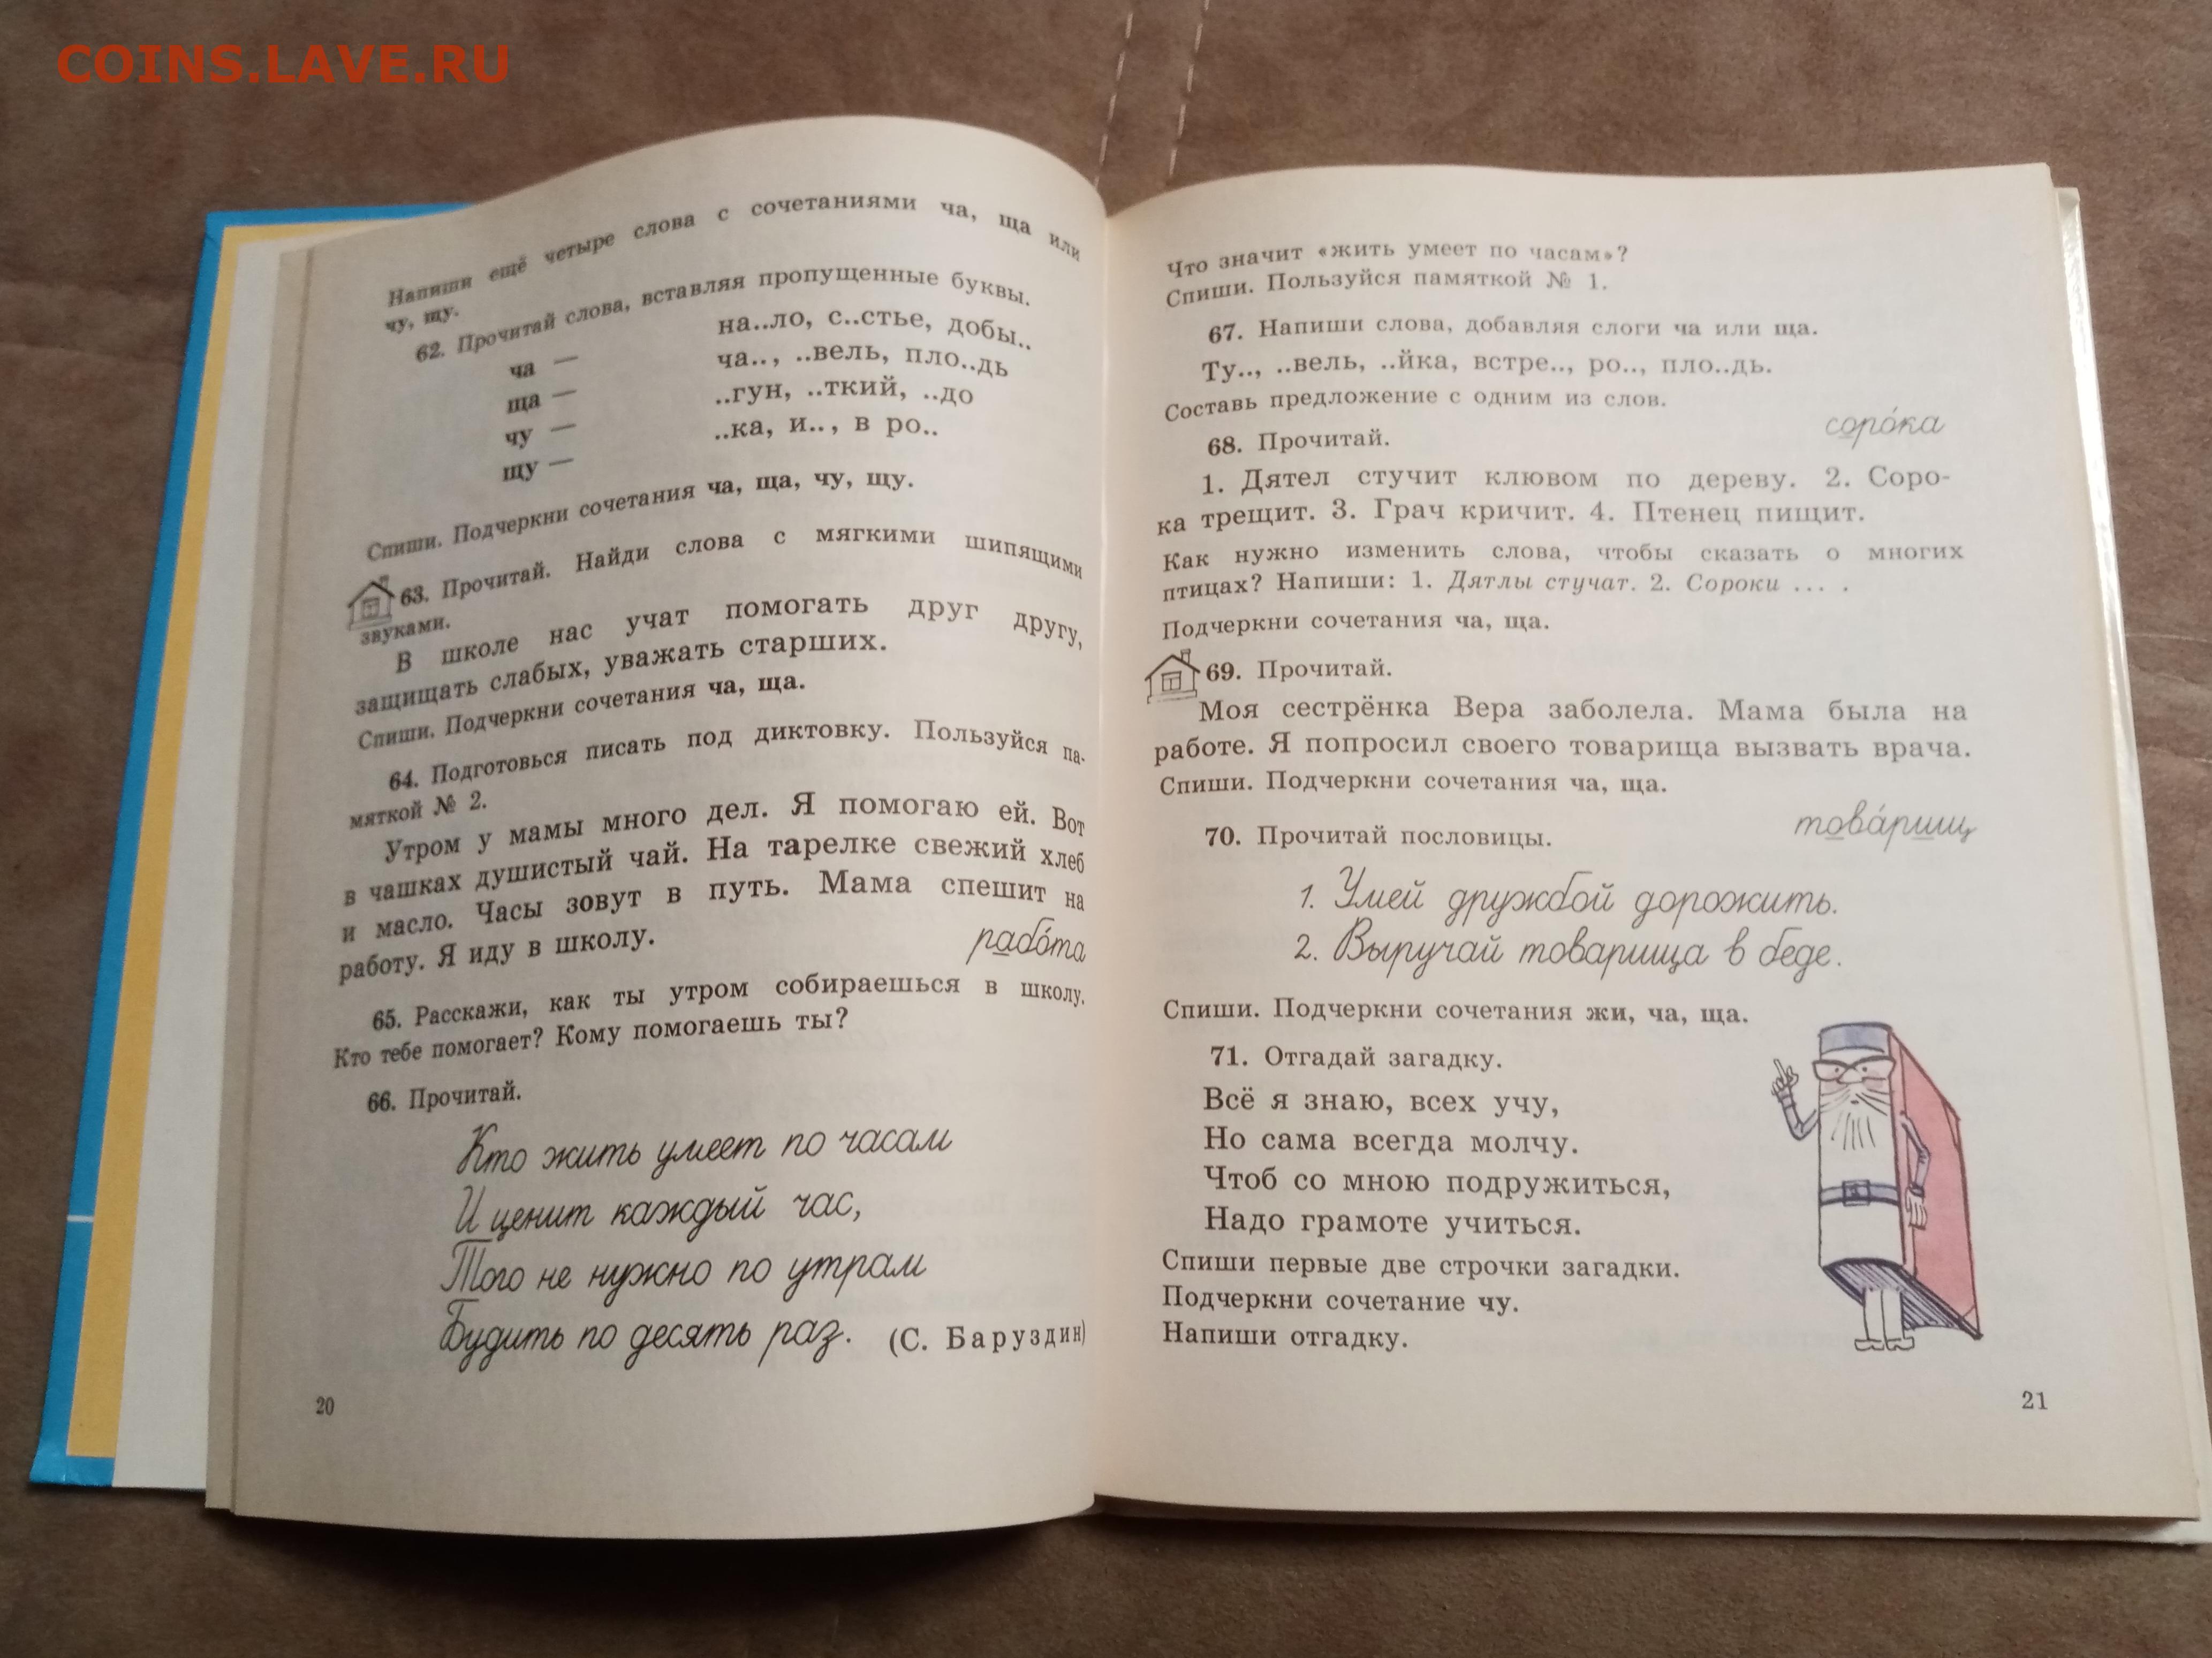 COINS.LAVE.RU
Напиши ещё четыре слова с сочетаниями ча, ща или
чу, щу.
62. Прочитай слова, вставляя пропущенные буквы.
ча — на..ло, с..стье, добы..
ща — ча.., ..вель, пло..дь
чу — ..гун, ..ткий, ..до
щу — ..ка, и.., в ро..
Спиши. Подчеркни сочетания ча, ща, чу, щу.
63. Прочитай. Найди слова с мягкими шипящими
звуками.
В школе нас учат помогать друг другу,
защищать слабых, уважать старших.
Спиши. Подчеркни сочетания ча, ща.
64. Подготовься писать под диктовку. Пользуйся па-
мяткой № 2.
Утром у мамы много дел. Я помогаю ей. Вот
в чашках душистый чай. На тарелке свежий хлеб
и масло. Часы зовут в путь. Мама спешит на
работу. Я иду в школу.
рабо́та
65. Расскажи, как ты утром собираешься в школу.
Кто тебе помогает? Кому помогаешь ты?
66. Прочитай.
Кто жить умеет по часам
И ценит каждый час,
Того не нужно по утрам
Будить по десять раз.
(С. Баруздин)
20
Что значит «жить умеет по часам»?
Спиши. Пользуйся памяткой № 1.
67. Напиши слова, добавляя слоги ча или ща.
Ту.., ..вель, ..йка, встре.., ро.., пло..дь.
Составь предложение с одним из слов.
соро́ка
68. Прочитай.
1. Дятел стучит клювом по дереву. 2. Соро-
ка трещит. 3. Грач кричит. 4. Птенец пищит.
Как нужно изменить слова, чтобы сказать о многих
птицах? Напиши: 1. Дятлы стучат. 2. Сороки ... .
Подчеркни сочетания ча, ща.
69. Прочитай.
Моя сестрёнка Вера заболела. Мама была на
работе. Я попросил своего товарища вызвать врача.
Спиши. Подчеркни сочетания ча, ща.
това́рищ
70. Прочитай пословицы.
1. Умей дружбой дорожить.
2. Выручай товарища в беде.
Спиши. Подчеркни сочетания жи, ча, ща.
71. Отгадай загадку.
Всё я знаю, всех учу,
Но сама всегда молчу.
Чтоб со мною подружиться,
Надо грамоте учиться.
Спиши первые две строчки загадки.
Подчеркни сочетание чу.
Напиши отгадку.
21